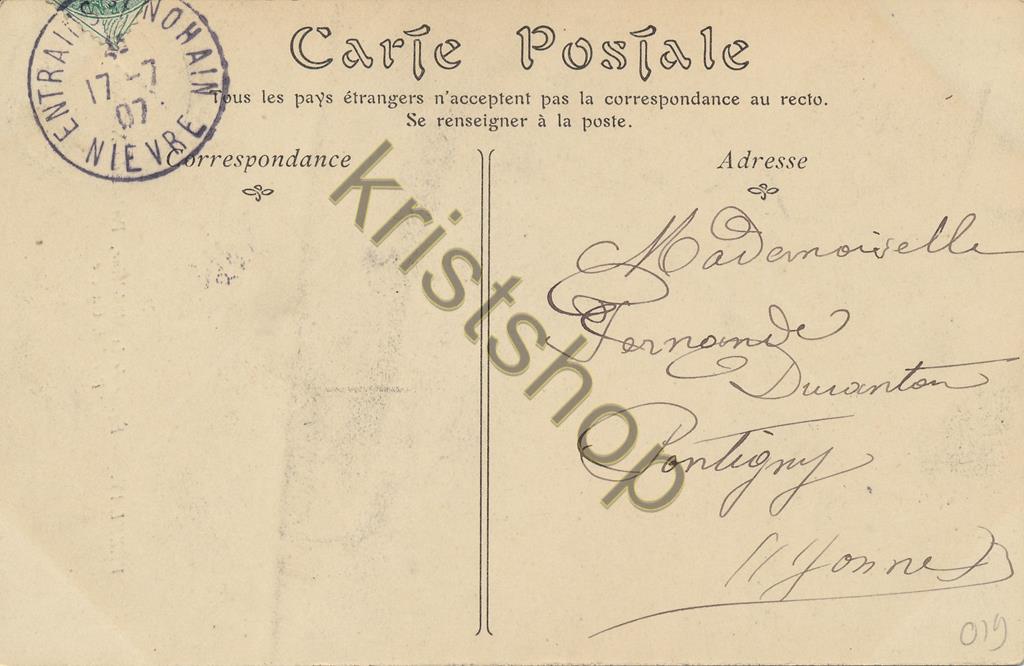 ENTRAINS-S-NOHAIN
17 -7
07
NIEVRE
Carte Postale
Tous les pays étrangers n'acceptent pas la correspondance au recto.
Se renseigner à la poste.
Correspondance
Adresse
Mademoiselle
Fernande
Duranton
Pontigny
Yonne
kristshop
019